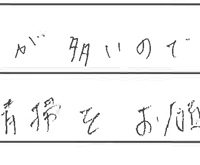 が多いので
清掃をお願